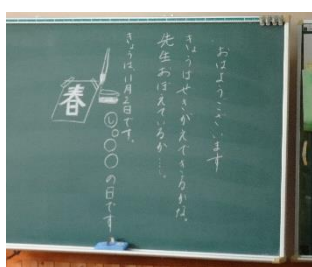 おはようございます
きょうはせきがえできるかな。
先生おぼえているか…。
きょうは11月2日です。
○○○の日です
春